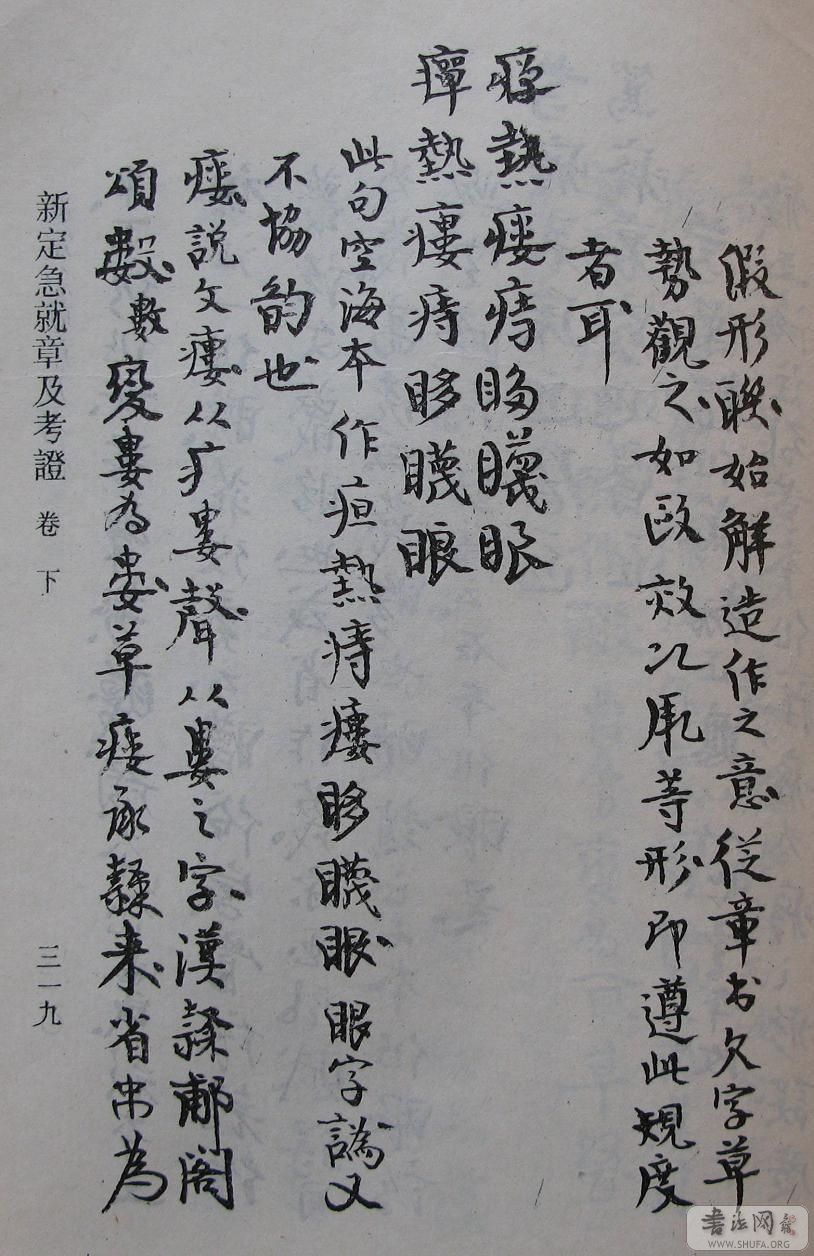 假形聯始解造作之意從章书文字草
勢觀之如歐效次虎等形即遵此規度
者耳
瘅熱瘻痔眵䁾眼
癉熱瘻痔眵䁾眼
此句空海本作疸熱痔瘻眵䁾眼眼字譌又
不協韵也
瘻說文瘻从疒婁聲从婁之字漢隸郙閣
頌數數變婁為婁草瘻承隸来省串為
新定急就章及考證 卷 下
三一九
書法网
WWW.SHUFA.ORG